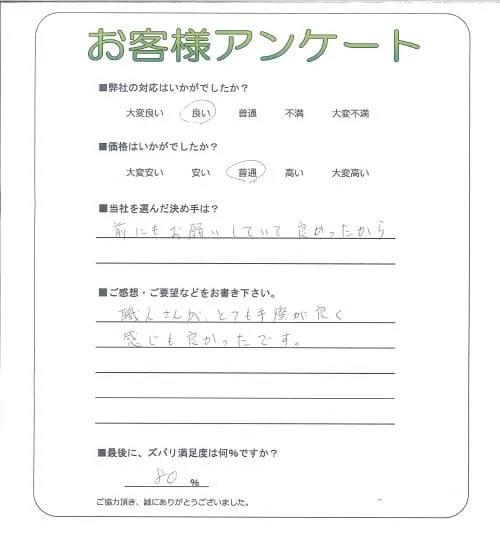 お客様アンケート
■弊社の対応はいかがでしたか？
大変良い 良い 普通 不満 大変不満
■価格はいかがでしたか？
大変安い 安い 普通 高い 大変高い
■当社を選んだ決め手は？
前にもお願いしていて良かったから
■ご感想・ご要望などをお書き下さい。
職人さんが、とても手際が良く
感じも良かったです。
■最後に、ズバリ満足度は何％ですか？
80 ％
ご協力頂き、誠にありがとうございました。